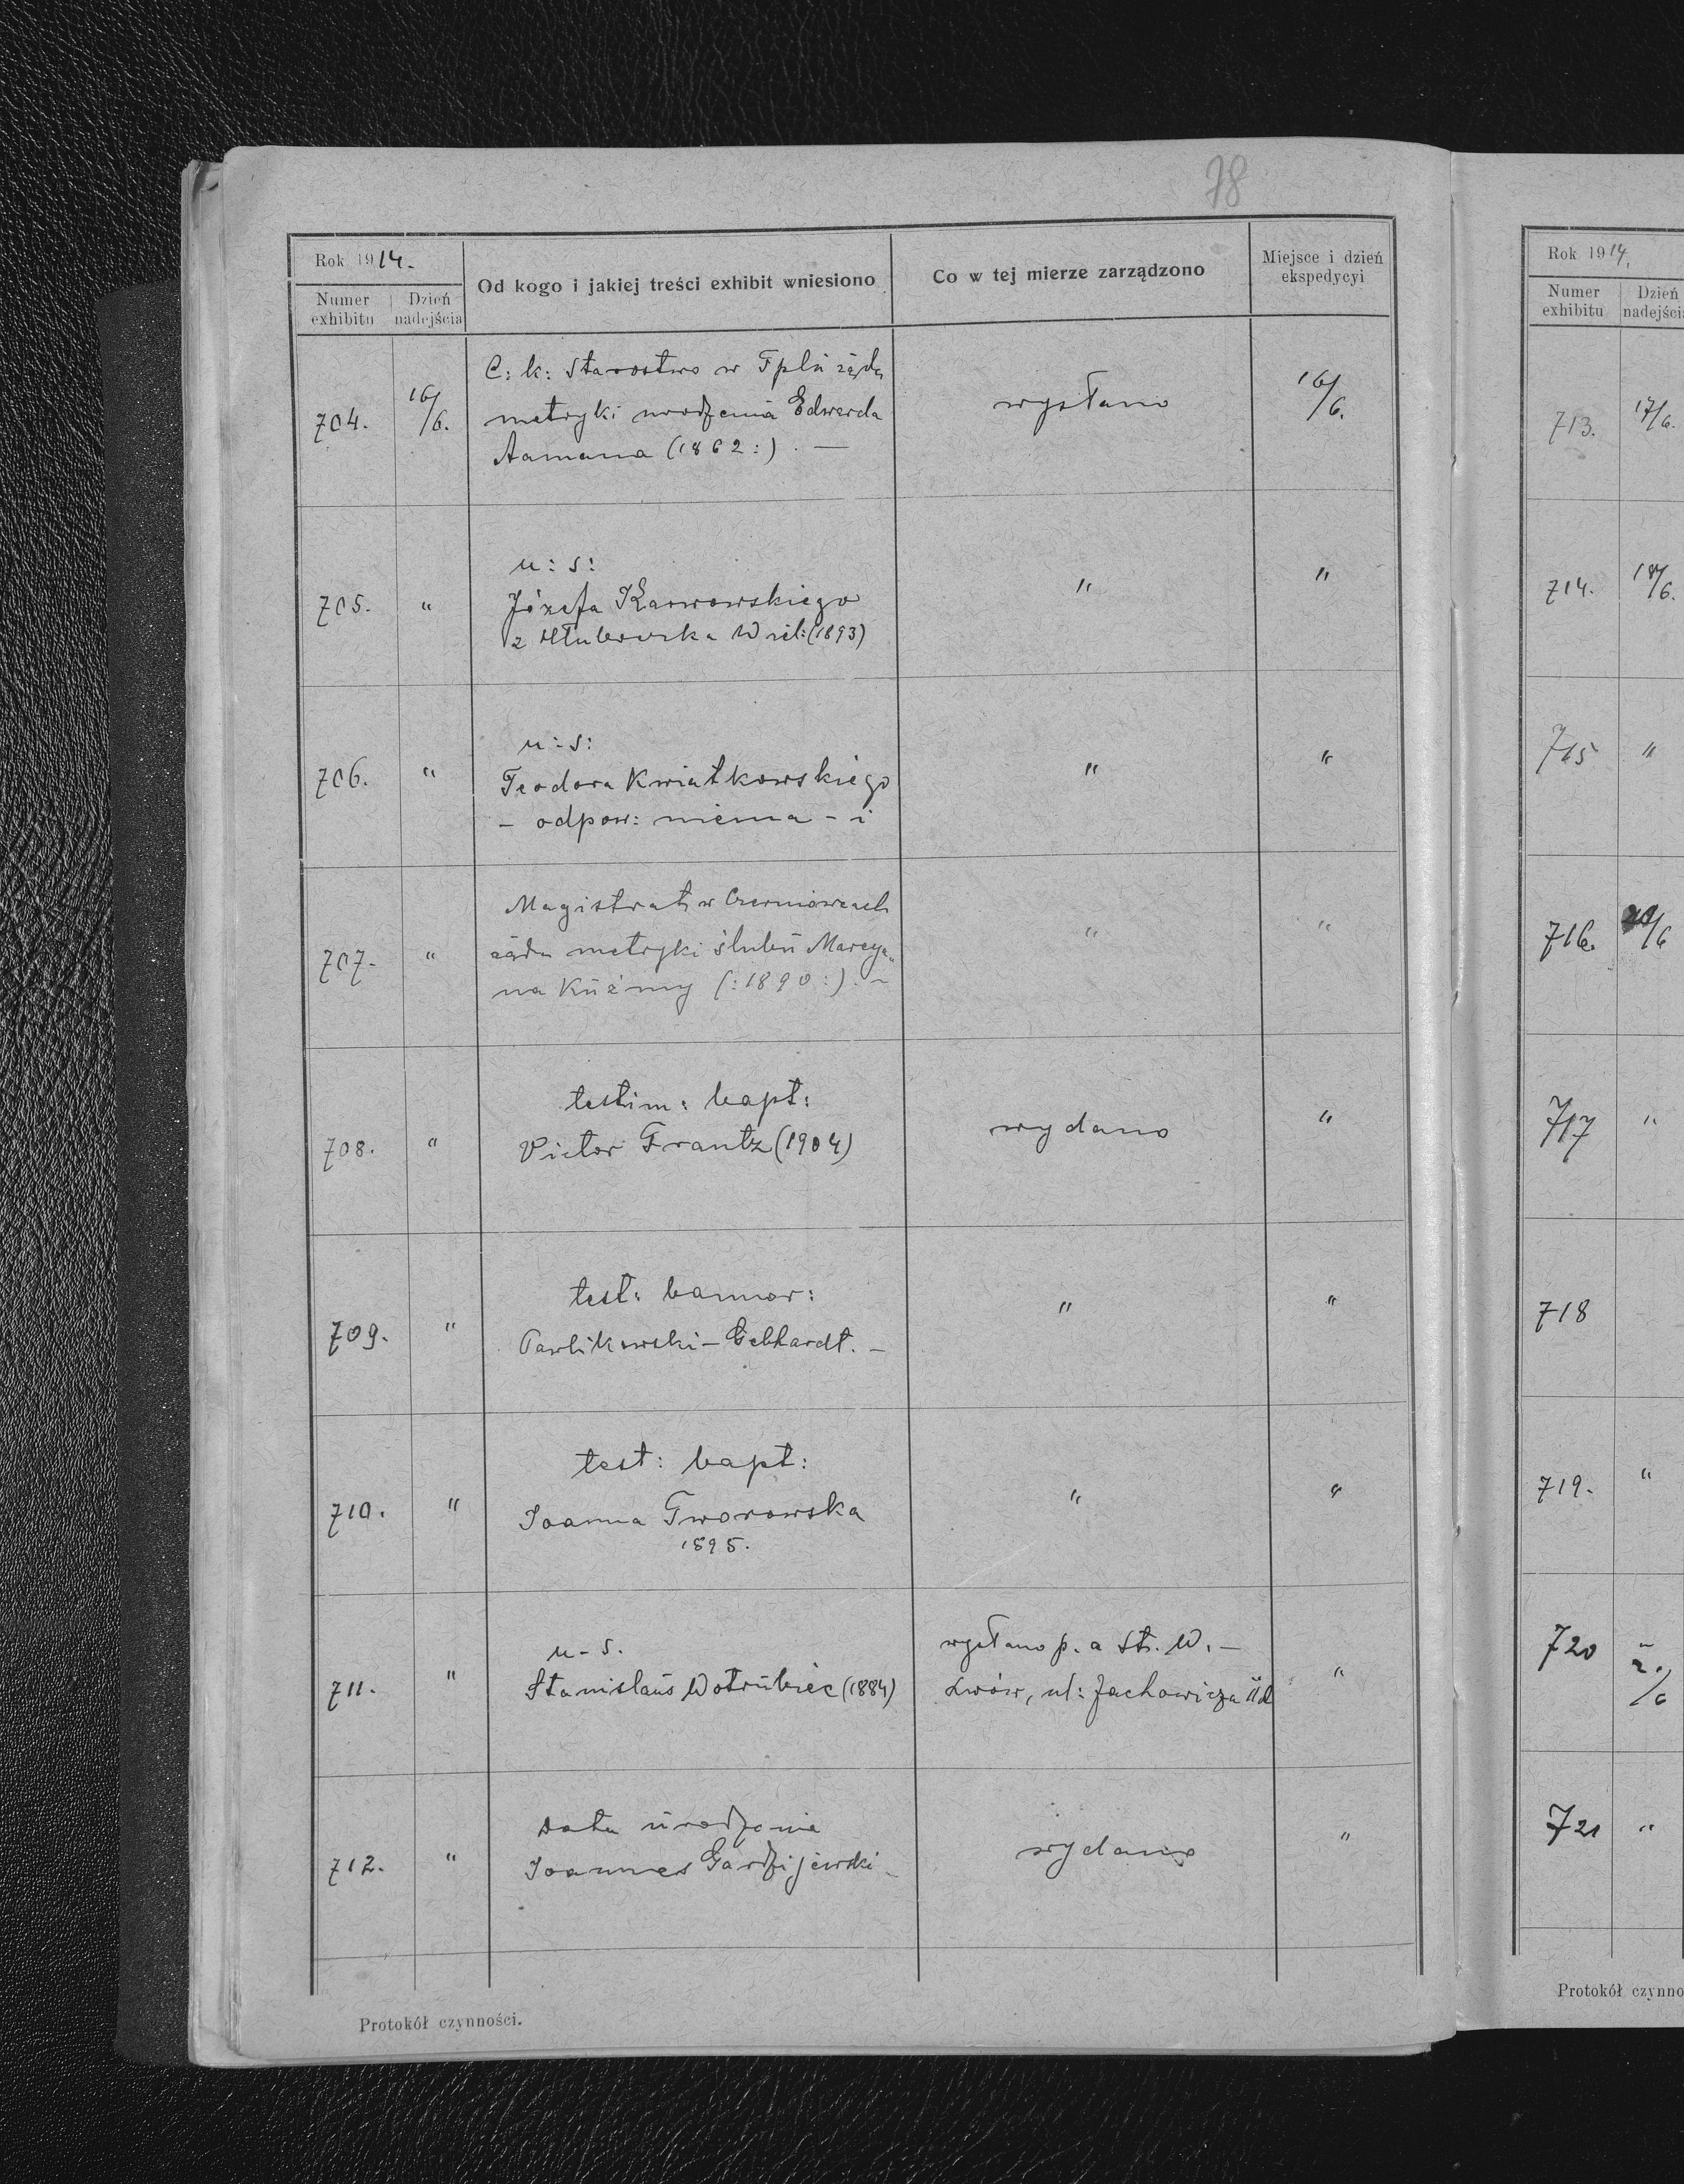 78
Rok 1914.
Numer exhibitu
Dzień nadejścia
Od kogo i jakiej treści exhibit wniesiono
Co w tej mierze zarządzono
Miejsce i dzień ekspedycyi
704. 16/6. C: k: Starostwo w Tplu żąda wysłano 16/6.
metryki urodzenia Edwarda
(1862:). —
705. " u: s: " "
Józefa Karwowskiego
z Wiel: (1893)
706. " u: s: " "
Teodora Kwiatkowskiego
- odpow: niema - i
707. " Magistrat w Czerniowcach " "
żąda metryki ślubu Marcya„
na Kuźmy (:1890:). -
708. " testim: bapt: wydano "
Victor Frantz (1904)
709. " test: bannor: " "
Pawlikowski - Gebhardt. -
710. " test: bapt: " "
Joanna Tworowska
1895.
711. " u - s. wysłano p. a St. W. - "
Stanislaus Wotrubiec (1884) Lwów, ul: Zachowicza
712. " Data urodzenia wydano "
Joannes Gardzijewski -
Protokół czynności.
Rok 1914.
Numer exhibitu
Dzień nadejścia
713. 17/6.
714. 18/6.
715 "
716. /6
717 "
718
719. "
720
721 "
Protokół czynno